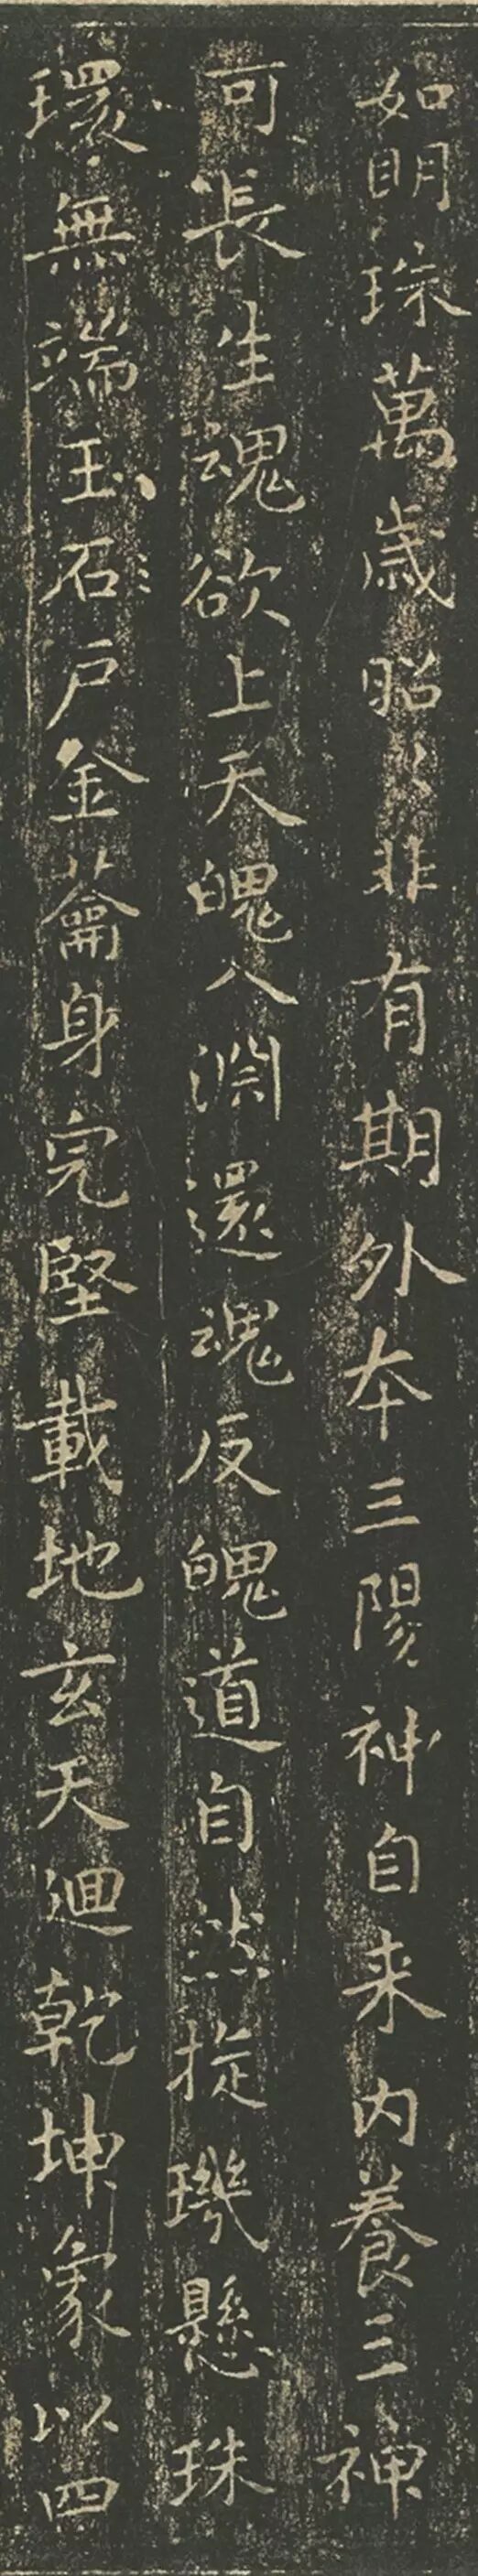 如明珠萬歲昭〻非有期外本三陽神自来内養三神
可長生魂欲上天魄入淵還魂反魄道自然旋璣懸珠
環無端玉石戶金蘥身完堅載地玄天迴乾坤象以四